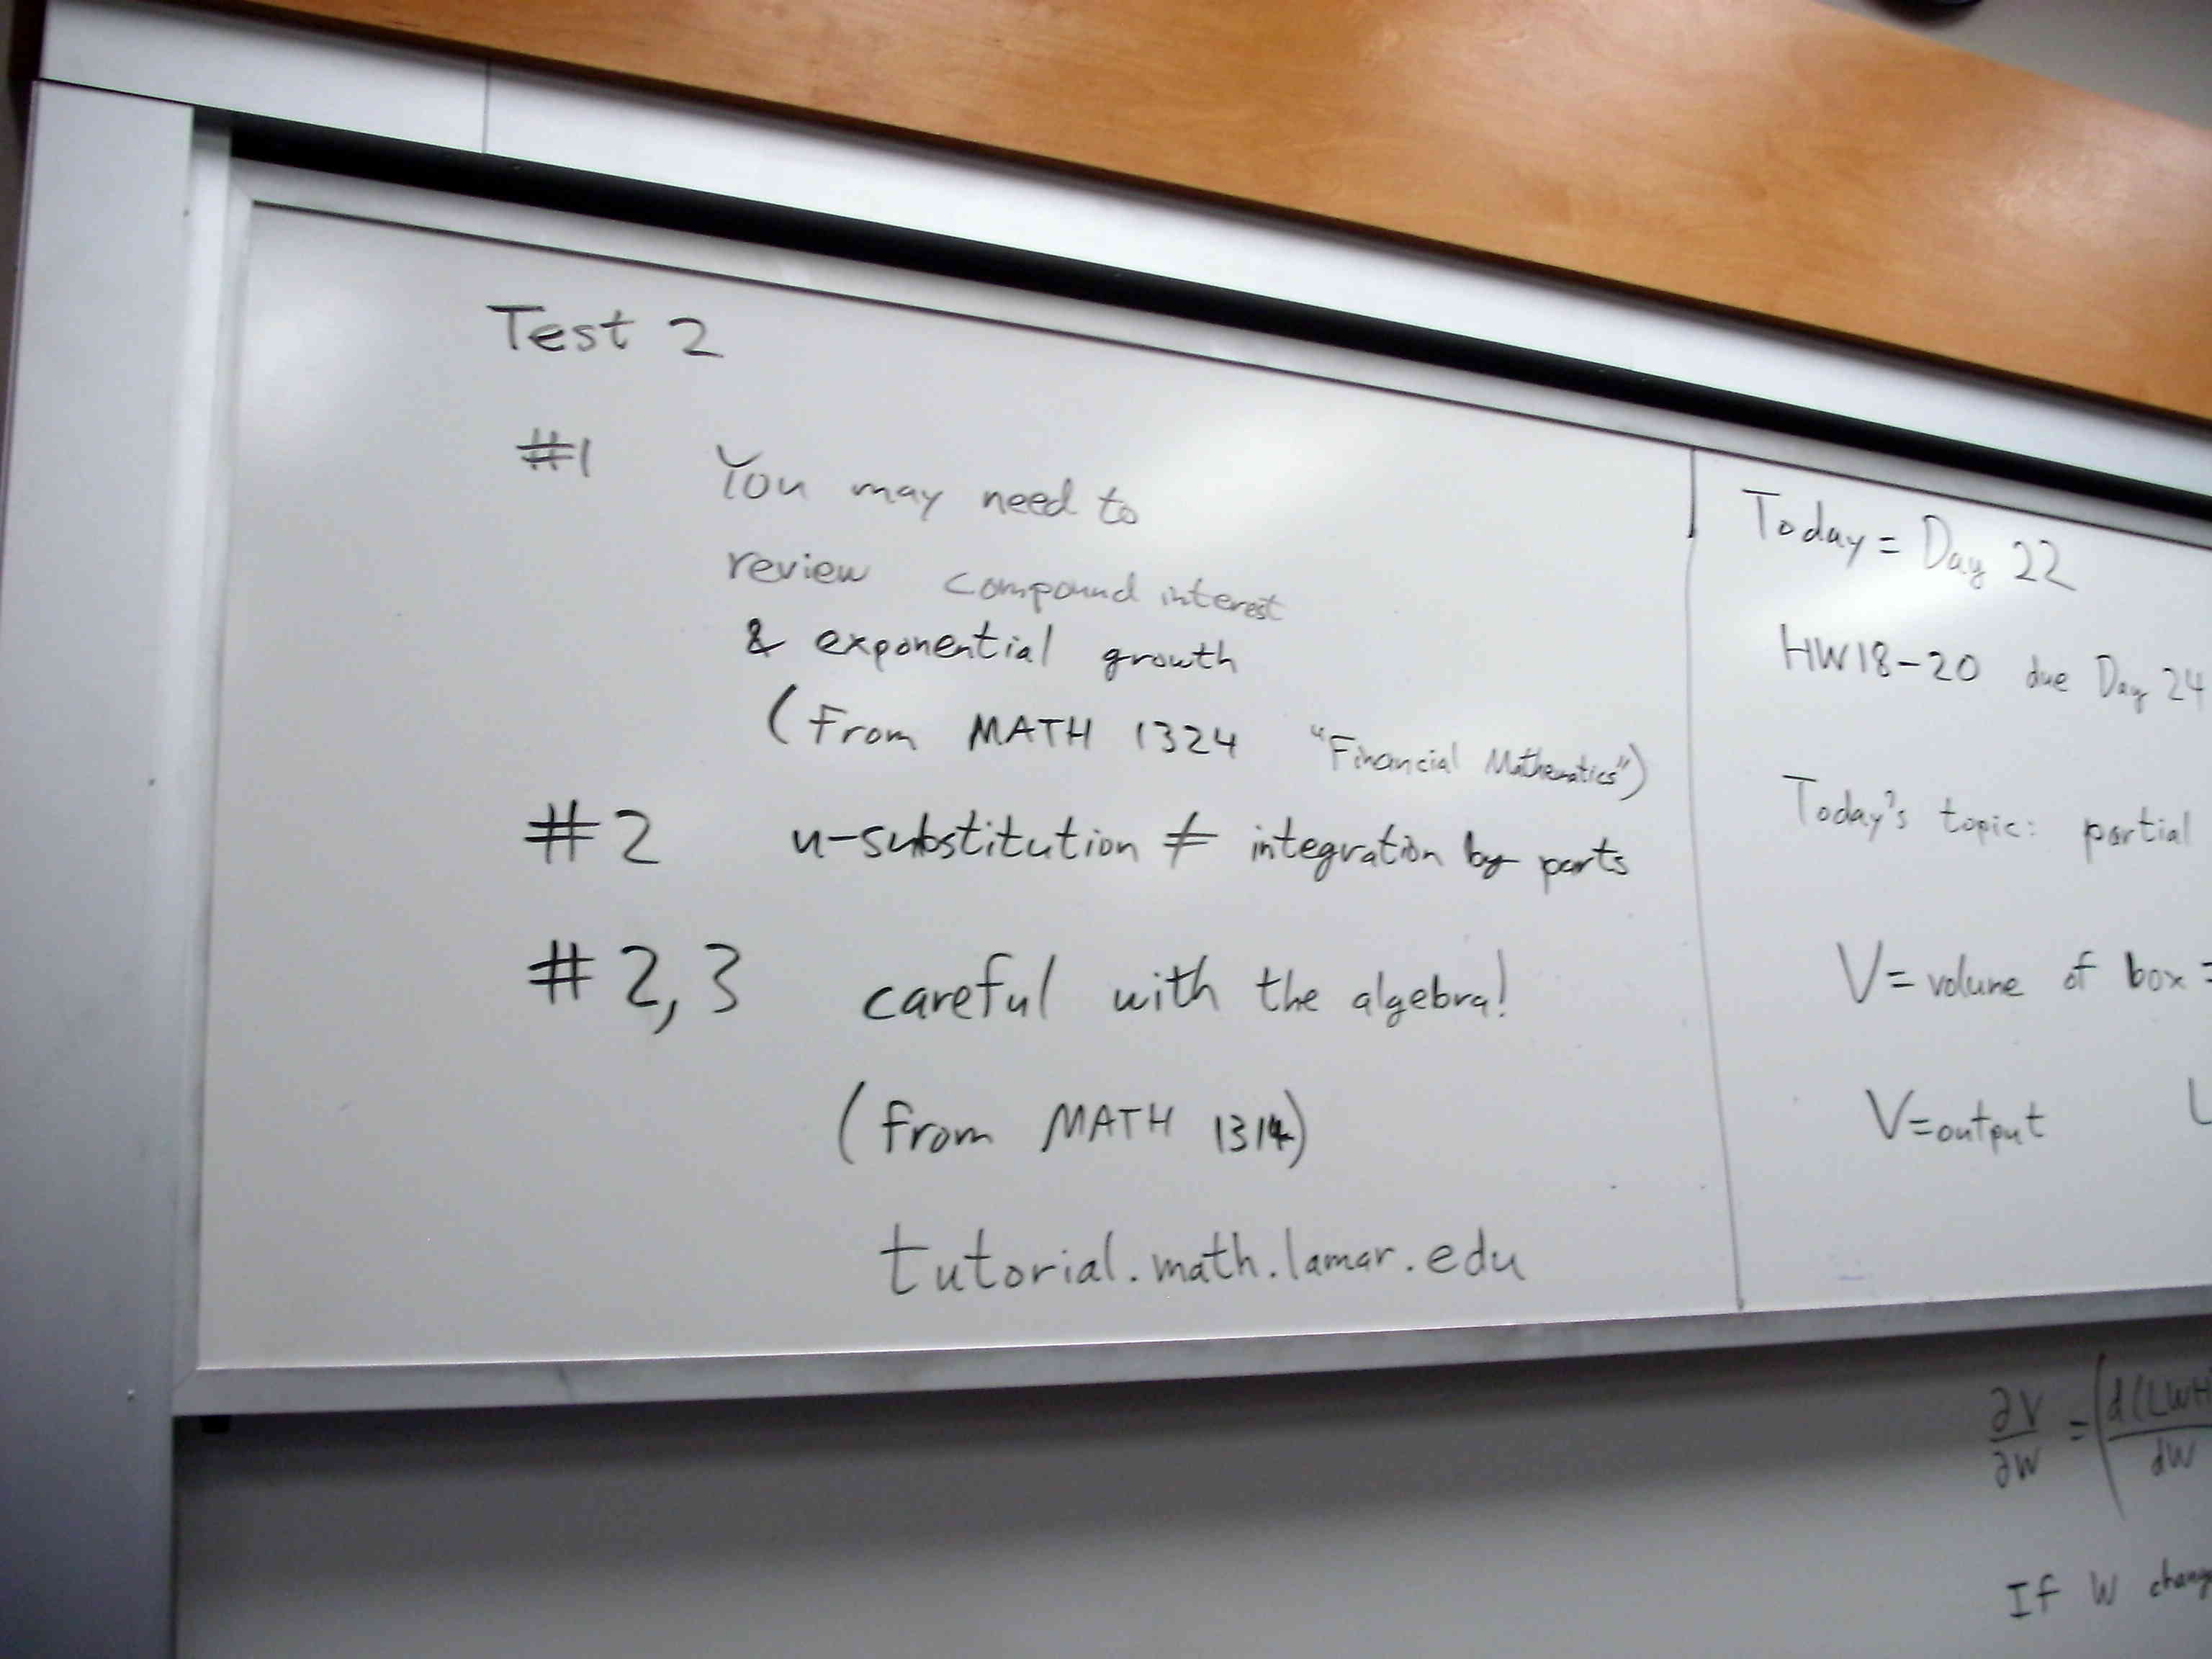 Test 2
#1 You may need to
review compound interest
& exponential growth
(from MATH 1324 "Financial Mathematics")
#2 u-substitution ≠ integration by parts
#2,3 careful with the algebra!
(from MATH 1314)
tutorial.math.lamar.edu
Today = Day 22
HW18-20 due Day 24
Today's topic: partial
V = volume of box =
V=output
∂V/∂W = (d(LWH/dW
If W